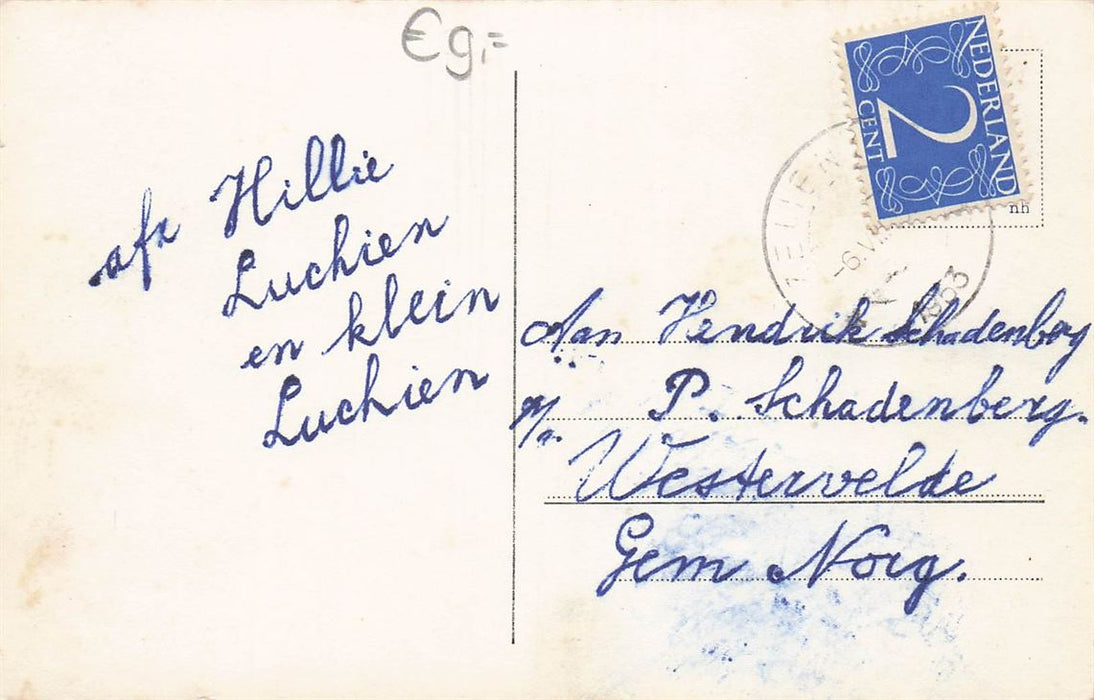 €9,=
NEDERLAND
2
CENT
1953
nh
afz Hillie
Luchien
en klein
Luchien
Aan Hendrik Schadenberg
P. Schadenberg.
Westervelde
Gem Norg.